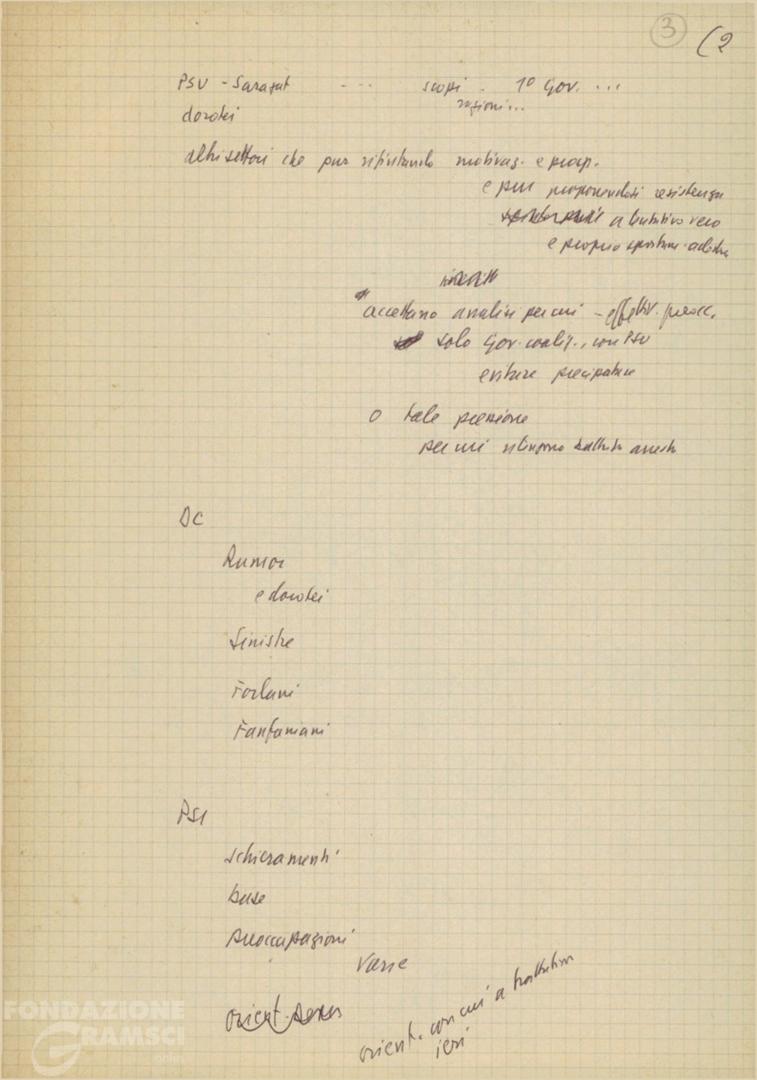 3 (2
PSU - Saragat --- scopi . 1º Gov. ...
ragioni...
dorotei
altri settori che pur rifiutando motivaz. e preocp.
e pur proponendosi resistenza
a tentativo vero
e proprio spostam. a destra
accettano analisi per cui - effettiv. preocc.
solo Gov. coaliz., con PSU
evitare precipitare
o tale pressione
per cui ritengono
DC
Rumor
e dorotei
Sinistre
Forlani
Fanfaniani
PSI
schieramenti
base
preoccupazioni
Varie
orient.
orient. con cui a trattativa
ieri
FONDAZIONE
GRAMSCI